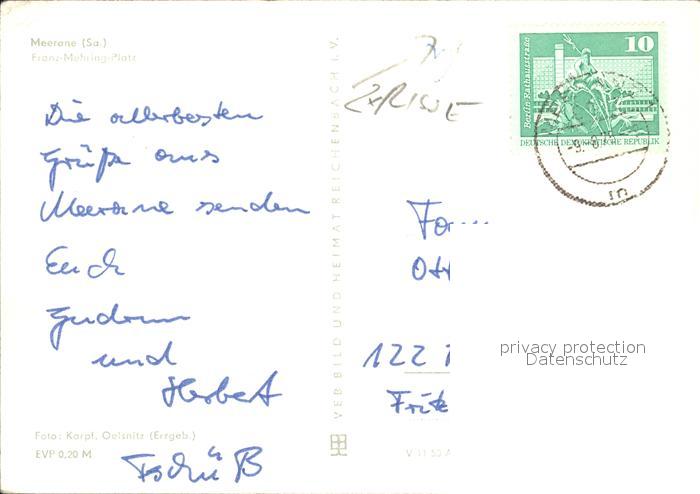 Meerane (Sa.)
Franz-Mehring-Platz
Die allerbesten
Grüße aus
Meerane senden
Euch
Gudrun
und
Herbert
Tschüß
Foto: Karpf, Oelsnitz (Erzgeb.)
EVP 0,20 M
VEB BILD UND HEIMAT REICHENBACH I. V.
10
Berlin·Rathausstraße
DEUTSCHE DEMOKRATISCHE REPUBLIK
Fa...
Ott
122
Fritz
V 11 50 A
privacy protection
Datenschutz